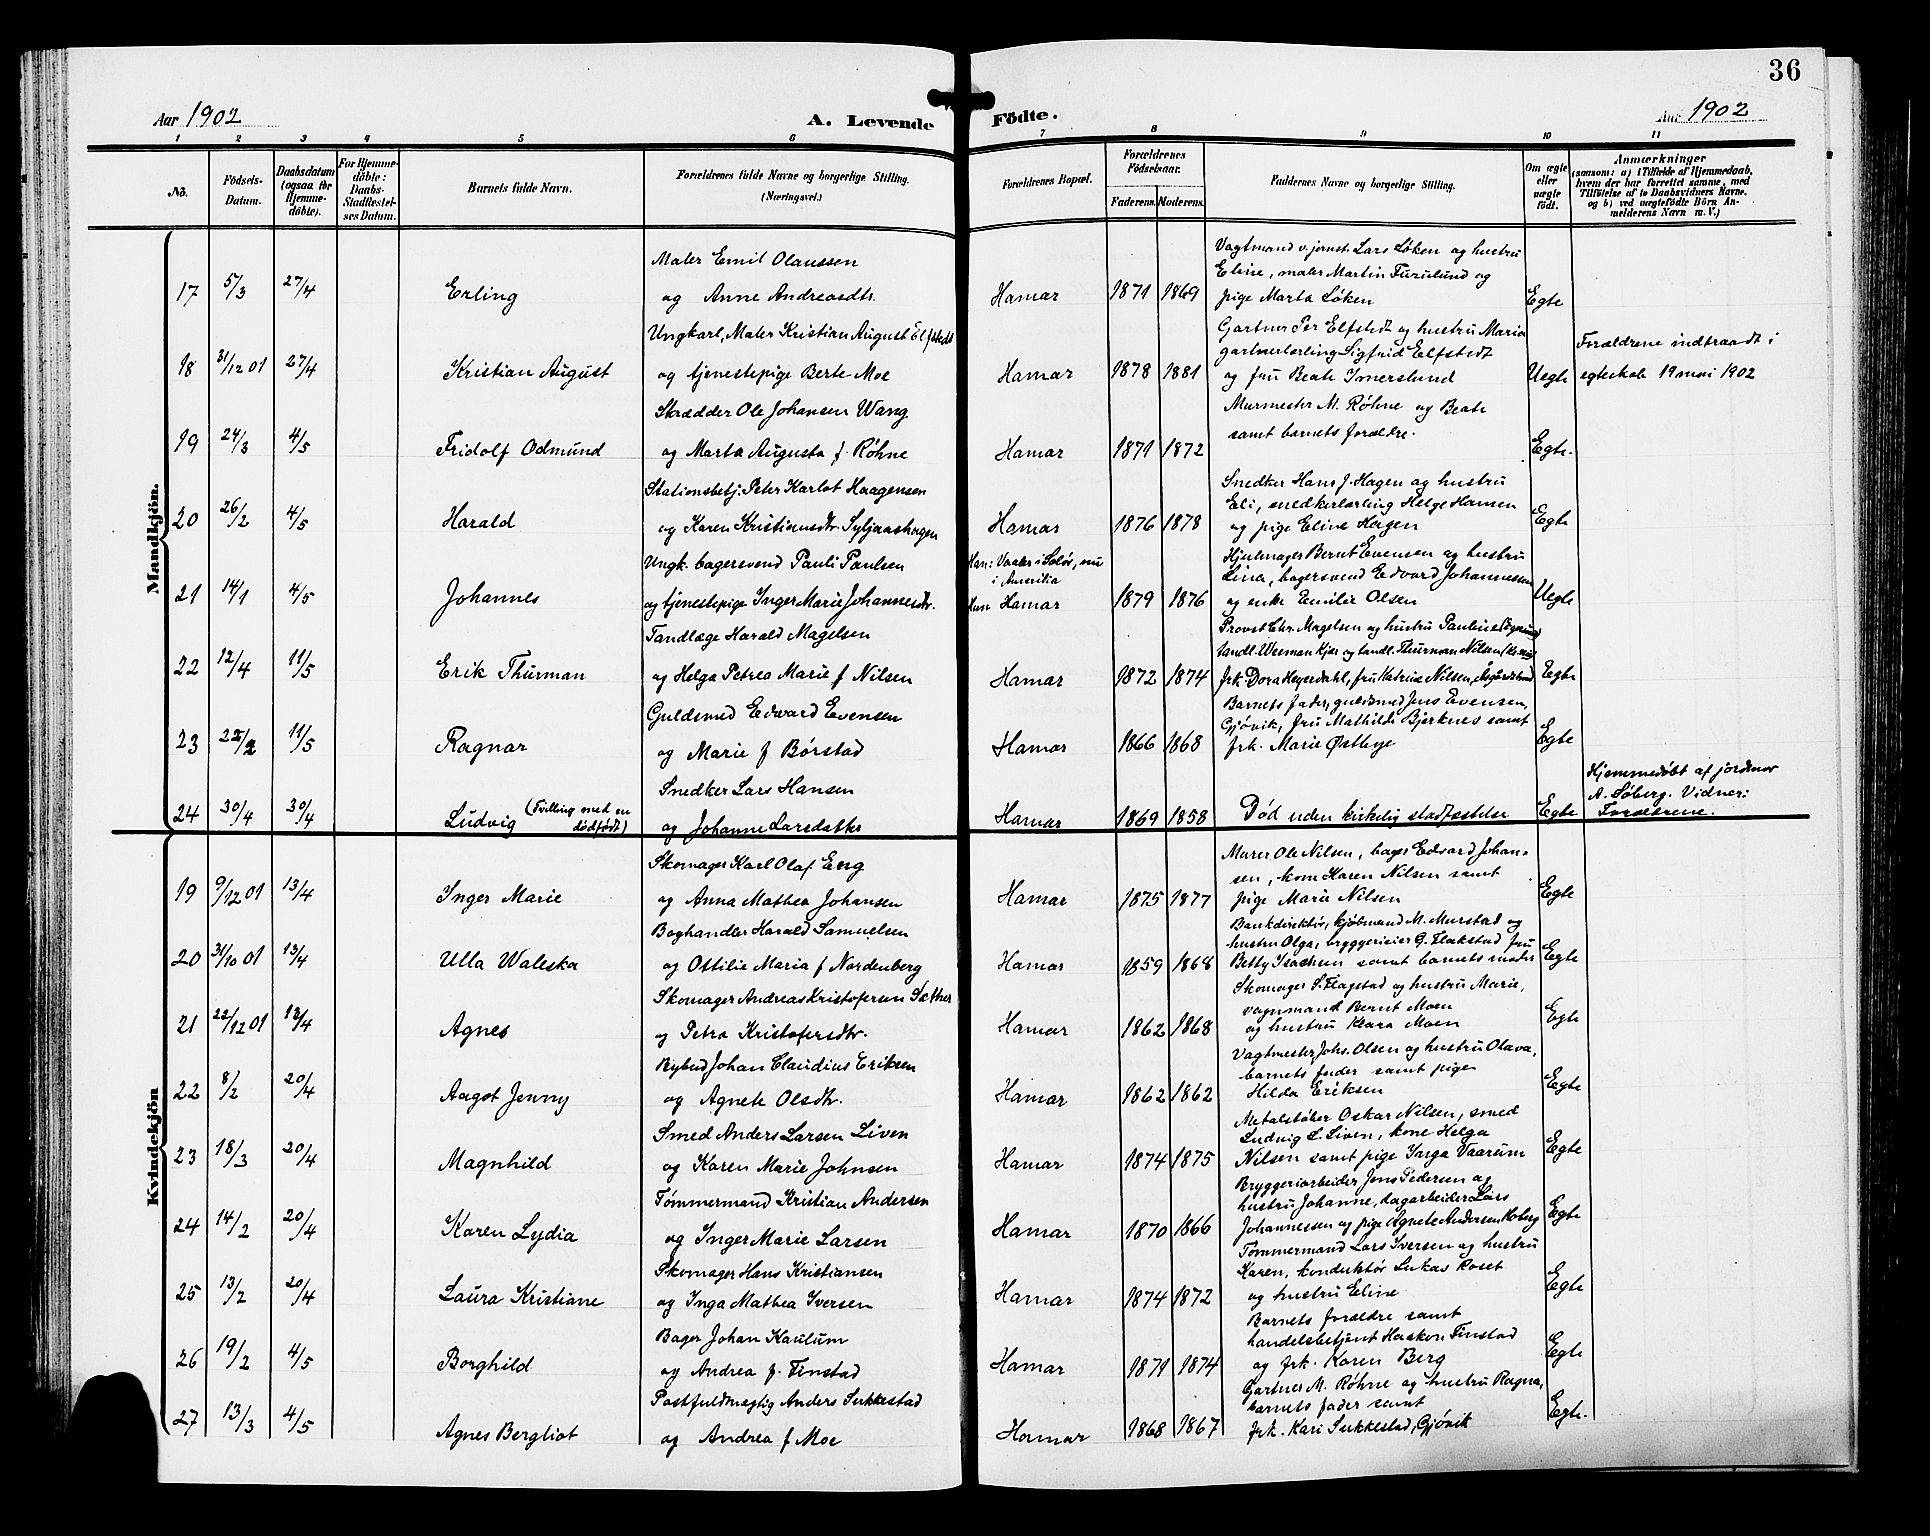 36
Aar 1902
A. Levende Fødte.
Aar 1902
1 2 3 4 5 6 7 8 9 10 11
No. Fødsels-Datum. Daabsdatum (ogsaa for Hjemmedøbte). For Hjemmedøbte: Daabs-Stadfestelses Datum. Barnets fulde Navn. Forældrenes fulde Navne og borgerlige Stilling. (Næringsvei.) Forældrenes Bopæl. Forældrenes Fødselsaar. Faderens. Moderens. Faddernes Navne og borgerlige Stilling. Om ægte eller uægte født. Anmærkninger (saasom: a) i Tilfælde af Hjemmedaab, hvem der har forrettet samme, med Tilføielse af to Daabsvidners Navne. og b) ved uægtefødte Børn Anmelderens Navn m. V.)
Mandkjön.
Maler Emil Olaussen
17 5/3 27/4 Erling og Anne Andreasdtr. Hamar 1871 1869
Vagtmand v. jernst. Lars Løken og hustru
Eline, maler Martin Furulund og
pige Marta Løken Egte
Ungkarl, Maler Kristian August Elfstedt
18 31/12 01 27/4 Kristian August og tjenestepige Berte Moe Hamar 1878 1881
Gartner Per Elfstedt og hustru Maria
gartnerlærling Sigfrid Elfstedt
og fru Beate Imerslund Uegte
Forældrene indtraadt i
egteskab 19 mai 1902
Skrædder Ole Johansen Wang
19 24/3 4/5 Fridolf Odmund og Marta Augusta f. Røhne Hamar 1871 1872
Murmester M. Røhne og Beate
samt barnets forældre. Egte.
Stationsbetj. Peter Karlot Haagensen
20 26/2 4/5 Harald og Karen Kristiansdtr. Syljuashagen Hamar 1876 1878
Snedker Hans J. Hagen og hustru
Eli, snedkerlærling Helge Hansen
og pige Eline Hagen Egte
Ungk. bagersvend Pauli Paulsen
21 14/1 4/5 Johannes og tjenestepige Inger Marie Johannesdtr.
Han: Vaaler i Solør, nu
i Amerika
Hun Hamar 1879 1876
Hjulmager Bernt Evensen og hustru
Lina, bagersvend Edvard Johannessen
og enke Emilie Olsen Uegte
Tandlæge Harald Magelsen
22 12/4 11/5 Erik Thurman og Helga Petrea Marie f Nilsen Hamar 1872 1874
Provst Chr. Magelsen og hustru Pauline
tandl. Werman Kjær og tandl. Thurman Nilsen
frk. Dora Heyerdahl, fru Katrine Nilsen, Egte
Guldsmed Edvard Evensen
23 22/2 11/5 Ragnar og Marie f Børstad Hamar 1866 1868
Barnets fader, guldsmed Jens Evensen,
Gjøvik, fru Mathilde Bjerknes samt
frk. Marie Østbye Egte
Snedker Lars Hansen
24 30/4 30/4 Ludvig (Tvilling med en dødfødt) og Johanne Larsdatter Hamar 1869 1858
Død uden kirkelig stadfæstelse Egte
Hjemmedøbt af jordmor
A. Søberg. Vidner:
Forældrene.
Kvindekjön
Skomager Karl Olaf Eng
19 9/12 01 13/4 Inger Marie og Anna Mathea Johansen Hamar 1875 1877
Murer Ole Nilsen, bager Edvard Johan-
sen, kone Karen Nilsen samt
pige Marie Nilsen Egte
Boghandler Harald Samuelsen
20 31/10 01 13/4 Ulla Waleska og Ottilie Maria f Nordenberg Hamar 1859 1868
Bankdirektør, kjøbmand M. Murstad og
hustru Olga, bryggerieier G. Flakstad fru
Betty Isachsen samt barnets moder Egte
Skomager Andreas Kristofersen Sæther
21 22/12 01 13/4 Agnes og Petra Kristofersdtr. Hamar 1862 1868
Skomager S. Flagstad og hustru Marie,
vognmand Bernt Moen
og hustru Klara Moen Egte
Bybud Johan Claudius Eriksen
22 8/2 20/4 Aagot Jenny og Agnete Olsdtr. Hamar 1862 1862
Vagtmester Johs. Olsen og hustru Olava,
barnets fader samt pige
Hilda Eriksen Egte
Smed Anders Larsen Liven
23 18/3 20/4 Magnhild og Karen Marie Johnsen Hamar 1874 1875
Metalstøber Oskar Nilsen, smed
Ludvig L. Liven, kone Helga
Nilsen samt pige Inga Vaarum Egte
Tømmermand Kristian Andersen
24 14/2 20/4 Karen Lydia og Inger Marie Larsen Hamar 1870 1866
Bryggeriarbeider Jens Pedersen og
hustru Johanne, dagarbeider Lars
Johannessen og pige Agnete Andersen Hoberg Egte
Skomager Hans Kristiansen
25 13/2 20/4 Laura Kristiane og Inga Mathea Iversen Hamar 1874 1872
Tømmermand Lars Iversen og hustru
Karen, konduktør Lukas Roset
og hustru Eline Egte
Bager Johan Kaulum
26 19/2 4/5 Borghild og Andrea f. Finstad Hamar 1871 1874
Barnets forældre samt
handelsbetjent Haakon Finstad
og frk. Karen Berg Egte
Postfuldmægtig Anders Sukkestad
27 13/3 4/5 Agnes Bergliot og Andrea f Moe Hamar 1868 1867
Gartner M. Røhne og hustru Ragna,
barnets fader samt
frk. Kari Sukkestad, Gjøvik Egte.